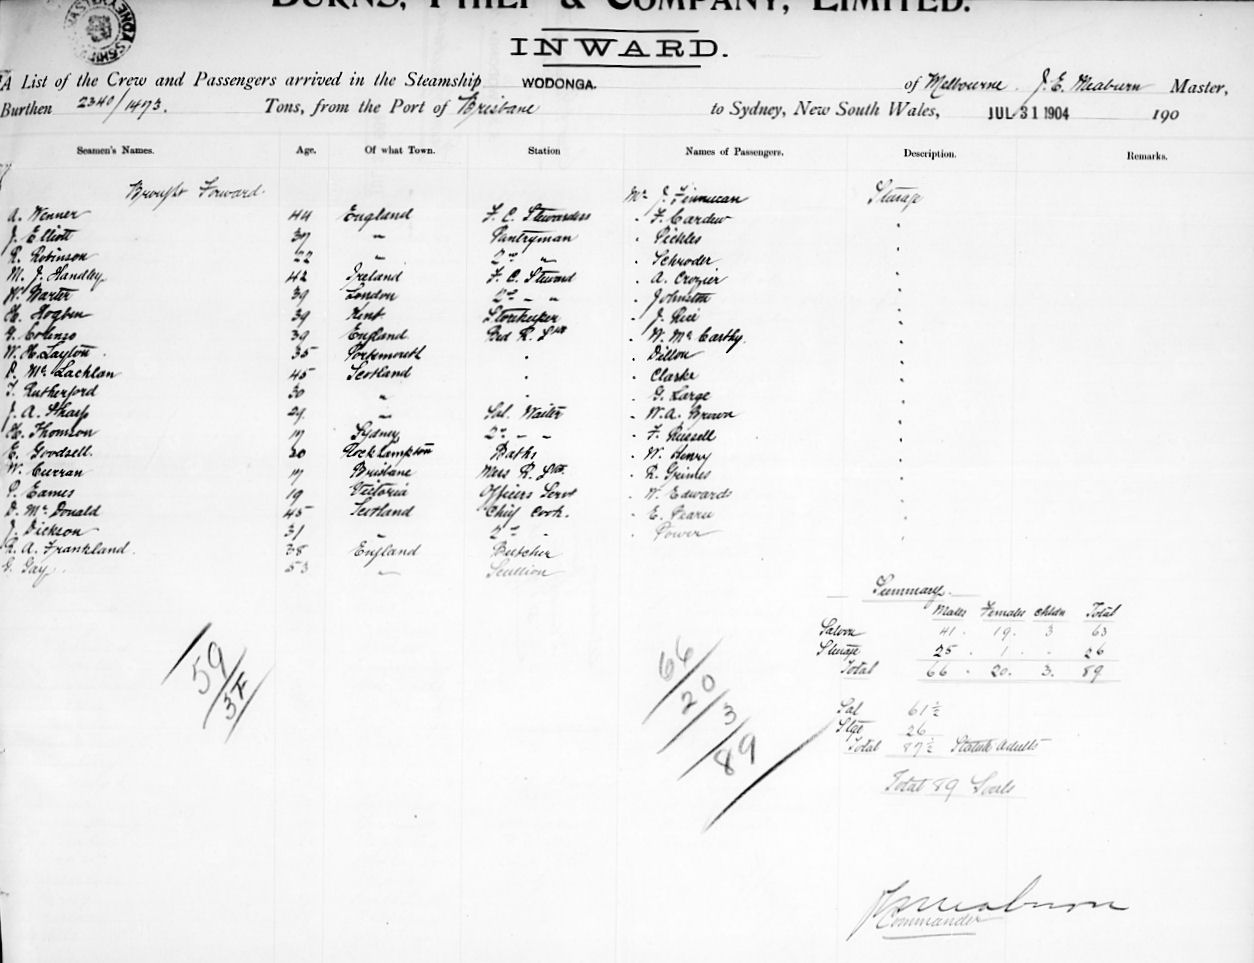 BURNS, PHILP & COMPANY, LIMITED.
INWARD.
A List of the Crew and Passengers arrived in the Steamship WODONGA. of Melbourne J. E. Meaburn Master,
Burthen 2340/1473. Tons, from the Port of Brisbane to Sydney, New South Wales, JUL 31 1904 190
Seamen's Names. Age. Of what Town. Station Names of Passengers. Description. Remarks.
Brought Forward Mr J. Finnucan Steerage
A. Wenner 44 England F. C. Stewardess " F. Cardew "
J. Elliott 37 " Pantryman " Pickles "
R. Robinson 22 " 2nd " " Schroder "
M. J. Handley 42 Ireland F. C. Steward " A. Crozier "
W. Warter 39 London 2nd " " " Johnston "
H. Hogben 39 Kent Storekeeper " J. Rice "
G. Colenso 39 England Bed R. Std " W. McCarthy "
W. H. Layton 35 Portsmouth " " Dillon "
P. McLachlan 45 Scotland " " Clarke "
T. Rutherford 30 " " " G. Large "
J. A. Sharp 29 " Sal. Waiter " W. A. Brown "
H. Thomson 17 Sydney 2nd " " " F. Russell "
E. Goodsell 20 Rockhampton Baths " W. Henry "
W. Curran 17 Brisbane Mess R. Std. " R. Grimes "
P. Eames 19 Victoria Officers Servt " W. Edwards "
D. McDonald 45 Scotland Chief Cook. " E. Pearce "
J. Dickson 31 " 2nd " " Power "
R. A. Frankland 38 England Butcher
G. Gay. 53 " Scullion
Summary.
Males Females Chldn Total
Saloon 41 . 19 . 3 63
Steerage 25 . 1 . - 26
Total 66 . 20 . 3. 89
59/37
66/20/3/89
Sal 61½
Stge 26
Total 87½ Statute Adults
Total 89 Souls
J. E. Meaburn
Commander